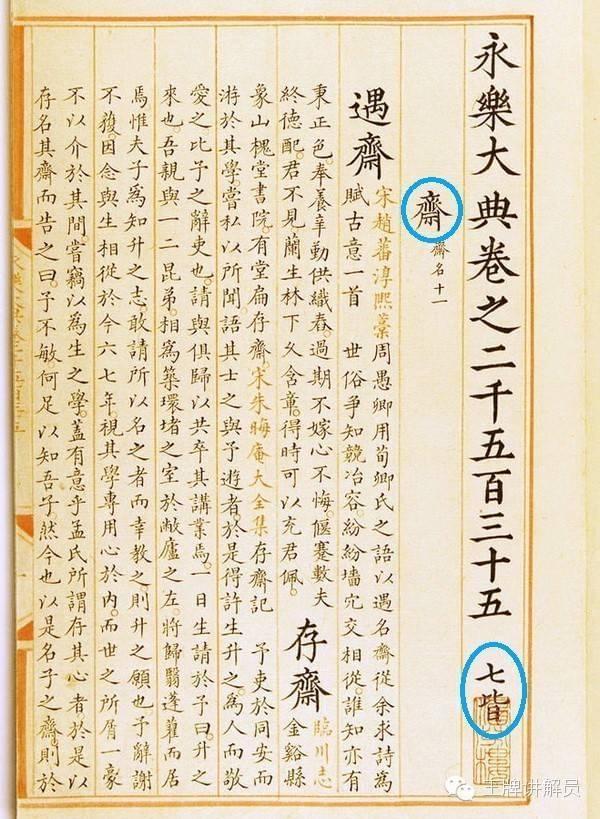 永樂大典卷之二千五百三十五 七皆
齋 齋名十一
遇齋 宋趙蕃淳熙藁周愚卿用荀卿氏之語以遇名齋從余求詩爲
賦古意一首 世俗爭知競冶容紛紛墻宂交相從誰知亦有
秉正色奉養辛勤供織舂過期不嫁心不悔偃蹇數夫
終德配君不見蘭生林下久含章得時可以充君佩
存齋 臨川志
金谿縣
象山槐堂書院有堂扁存齋宋朱晦庵大全集存齋記 予吏於同安而
游於其學嘗私以所聞語其士之與予遊者於是得許生升之爲人而敬
愛之比予之辭吏也請與俱歸以共卒其講業焉一日生請於予曰升之
來也吾親與一二昆弟相爲築環堵之室於敝廬之左將歸翳蓬藋而居
焉惟夫子爲知升之志敢請所以名之者而幸教之則升之願也予辭謝
不獲因念與生相從於今六七年視其學專用心於內而世之所屑一豪
不以介於其間嘗竊以爲生之學蓋有意乎孟氏所謂存其心者於是以
存名其齋而告之曰予不敏何足以知吾子然今也以是名子之齋則於
王牌讲解员